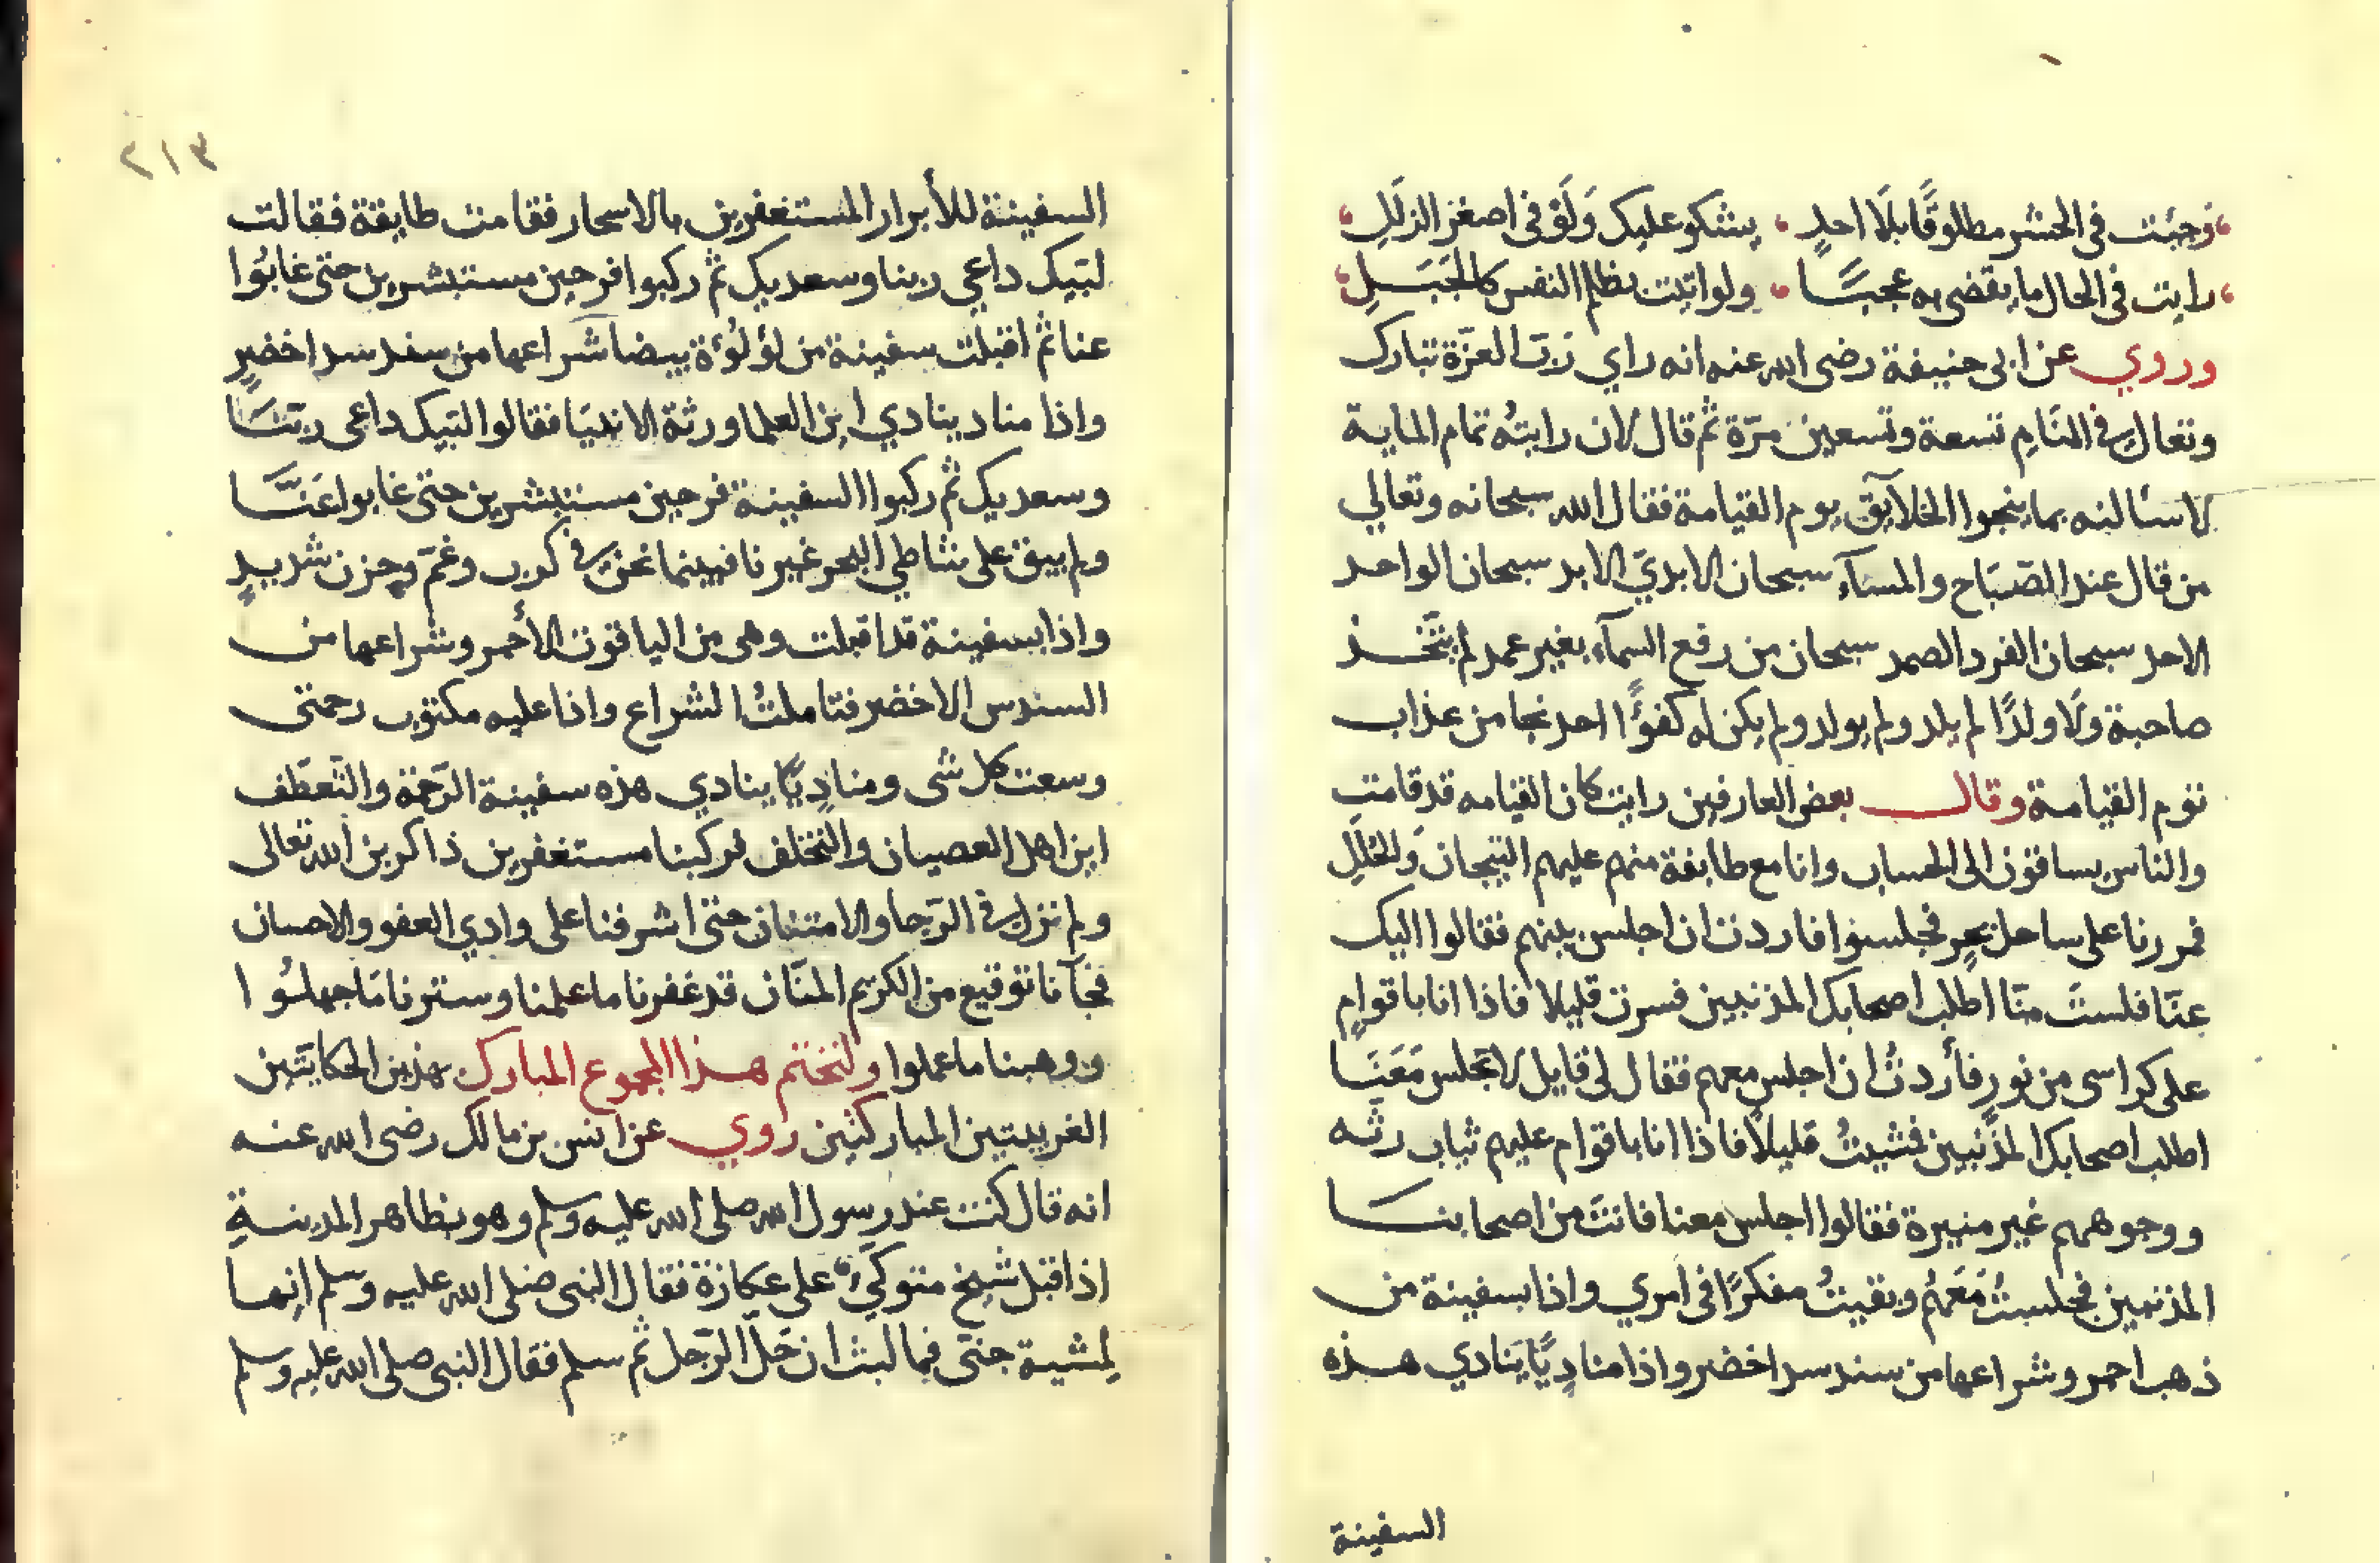 وجئت فى الحشر مطلوقًا بلَا احدٍ ، يشكو عليك وَلَوْ فى اصغر الزلَلِ
رايت فى الحال ما يقضى به عجبًا ، ولو اتيت بظلم النفس كالجَبَلِ
وروي عن ابى حنيفة رضى الله عنه انه راي رَبّ العزّة تبارك
وتعالى فى المنَامِ تسعة وتسعين مرّة ثم قال لان رايتُه تمام الماية
لاسئالنه بما ينجوا الخلآيق يوم القيامة فقال الله سبحانه وتعالي
من قال عند الصّبَاح والمسآء سبحان الابديّ الابد سبحان الواحد
الاحد سبحان الفرد الصمد سبحان من رفع السمآء بغير عمد لم يتّخذ
صاحبة ولَا ولدًا لم يلد ولم يولد ولم يكن له كفوًا احد نجا من عذاب
يوم القيامة وقال بعض العارفين رايت كان القيامه قد قامتِ
والناس يساقون الى الحساب وانا مع طايفة منهم عليهم التيجان وَالحُللِ
فمررنا على ساحل بحرٍ فجلسوا فاردت ان اجلس بينهم فقالوا اليك
عنّا فلستَ منّا اطلب اصحابك المذنبين فسرت قليلا فاذا انا باقوامٍ
على كراسى من نورٍ فأردتُ ان اجلس معهم فقال لى قايل لا تجلس مَعَنَا
اطلب اصحابك المذنبين فمشيتُ قليلاً فاذا انا باقوام عليهم ثياب رثه
ووجوههم غير منيرة فقالوا اجلس معنا فانتَ من اصحابنا
المذنبين فجلستُ مَعَهُم وبقيتُ مفكرًا فى امري واذا بسفينة من
ذهب احمر وشراعها من سندسٍ اخضر واذا مناديًا يَنادي هذه
السفينة
٢١٣
السفينة للأبرار المستغفرين بالاسحار فقامت طايفة فقالت
لبّيك داعي ربنا وسعديك ثم ركبوا فرحين مستبشرين حتى غابُوا
عنا ثم اقبلت سفينة من لؤلؤة بيضا شراعها من سندسٍ اخضرٍ
واذا مناد ينادي اين العلما ورثة الانبيَا فقالوا لبّيك داعى ربّنَا
وسعديك ثم ركبوا السفينة فرحين مستبشرين حتى غابوا عَنَّا
ولم يبق على شاطي البحر غيرنا فبينما نحن فى كرب وغمّ وحزن شديدٍ
واذا بسفينة قد اقبلت وهى من الياقوت الأحمر وشراعها من
السندس الاخضر فتاملتُ الشراع واذا عليه مكتوب رحمتى
وسعت كل شى ومناديًا ينادي هذه سفينة الرّحمة والتّعطّف
اين اهل العصيان والتخلف فركبنا مستغفرين ذاكرين الله تعالى
ولم نزل فى الرّجا والامتنان حتى اشرفنا على وادي العفو والاحسان
فجآنا توقيع من الكريم المنّان قد غَفرنا ما علمنا وسترنا مَا جهلُوا
ووهبنا ما عملوا ولنختم هذا المجموع المبارك بهذين الحكايَتَين
الغريبتين المباركتين روي عن انس بن مالك رضى الله عنه
انه قال كنت عند رسول الله صلى الله عليه وسلم وهو بظاهر المدينةِ
اذ اقبل شيخ متوكّيءٌ على عكازة فقال النبى صلى الله عليه وسلم انها
لمشية جنّى فما لبث ان حَلّ الرّجل ثم سلم فقال النبى صلى الله عليه وسلم